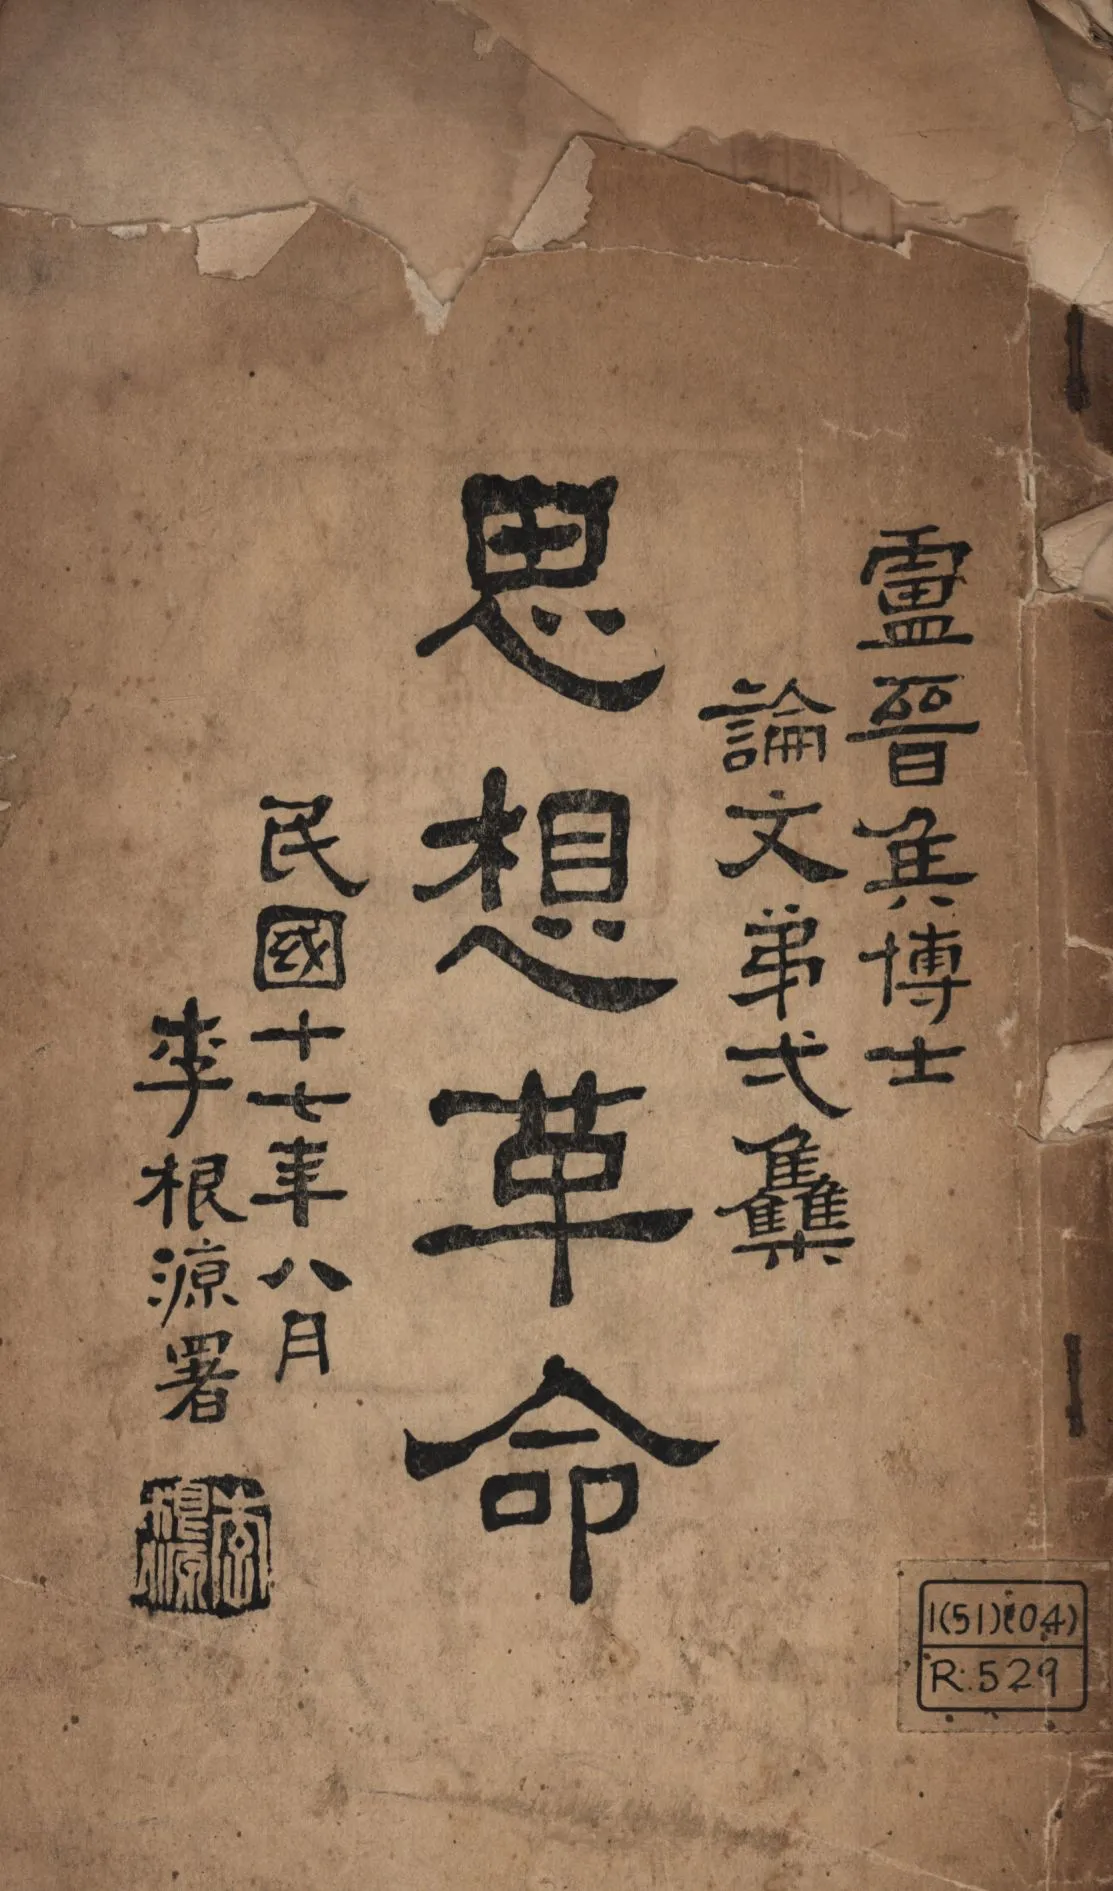 盧晉侯博士
論文弟弍雧
思想革命
民國十七年八月
李根源署
李根源
1(51)(04)
R:529